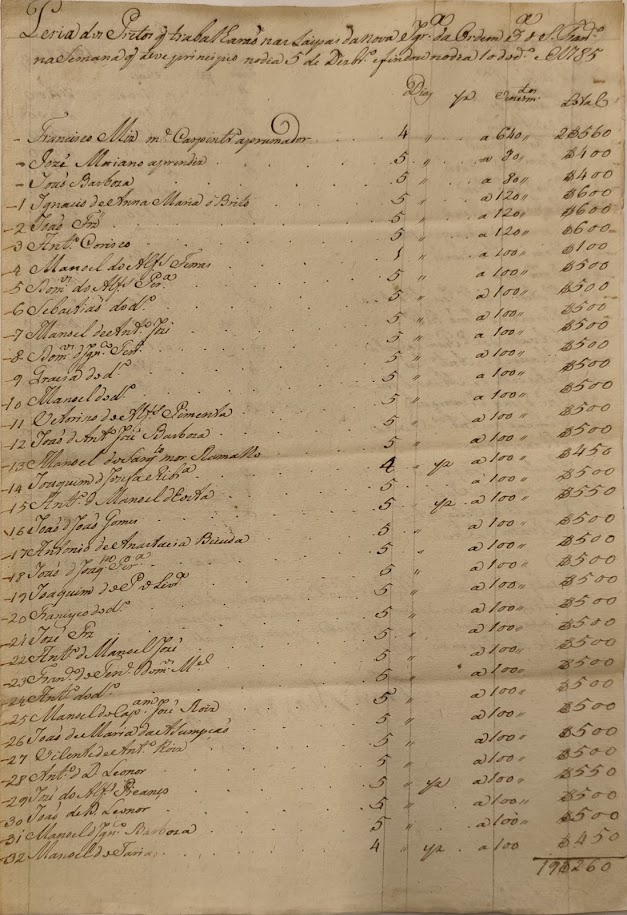 Feria dos Pretos q trabalharaõ nas Taipas da nova Igrª da Ordem 3ª d S. Franᶜᵒ
na Semana q teve principio no dia 5 de Dezbrº e findou no dia 10 do dº 1785
Dias ½ Total
- Francisco Mel mᵉ Carpintrº aprumador 4 " a 640 " 2$560
- Jozé Mariano aprendis 5 " a 80 " $400
- Joaõ Barboza 5 " a 80 " $400
-1 Ignacio de Anna Maria d Brito 5 " a 120 " $600
-2 Joaõ 5 " a 120 " $600
-3 Antº Corisco 5 " a 120 " $600
-4 Manoel do Alfs 1 " a 100 " $100
-5 Domᵒˢ do Alfs 5 " a 100 " $500
-6 Sebastiaõ do dº 5 " a 100 " $500
-7 Manoel de Antº Joze 5 " a 100 " $500
-8 Domᵒˢ d Ignᶜᵒ 5 " a 100 " $500
-9 Gracia do dº 5 " a 100 " $500
-10 Manoel do dº 5 " a 100 " $500
-11 Vetorino do Alfs Pimenta 5 " a 100 " $500
-12 Joaõ d Antº Joze Barboza 5 " a 100 " $500
-13 Manoel do Sargᵗᵒ mor Ramalho 4 " ½ a 100 " $450
-14 Joaquim d Jozefa Ribª 5 a 100 " $500
-15 Antº d Manoel de 5 " ½ a 100 " $550
-16 Joaõ d Joaõ Gomes 5 " a 100 " $500
-17 Antonio de Anastacia Bicuda 5 " a 100 " $500
-18 Joaõ d Joaqᵐ 5 " a 100 " $500
-19 Joaquim do 5 " a 100 " $500
-20 Francisco do dº 5 " a 100 " $500
-21 Joze 5 " a 100 " $500
-22 Antº d Manoel Joze 5 " a 100 " $500
-23 Franᶜᵒ do Tenᵉ Domᵒˢ Mel 5 " a 100 " $500
-24 Antº do dº 5 " a 100 " $500
-25 Manoel do Capᵃᵐ Joze Roiz 5 " a 100 " $500
-26 Joaõ de Maria da Asumpçaõ 5 " a 100 " $500
-27 Vicente de Antº Roiz 5 " a 100 " $500
-28 Antº d D Leonor 5 " a 100 " $500
-29 Joze do Alfs Franco 5 " ½ a 100 " $550
-30 Joaõ de D. Leonor 5 " a 100 " $500
-31 Manoel d Ignᶜᵒ Barboza 5 " a 100 " $500
-32 Manoel de Faria 4 " ½ a 100 $450
19$260